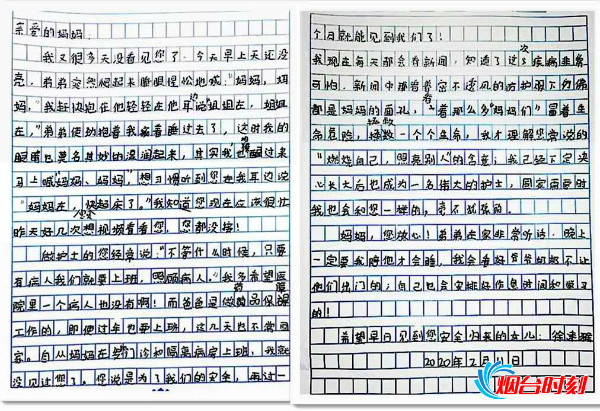 亲爱的妈妈:
我又很多天没看见您了。今天早上天还没
亮,弟弟突然爬起来睡眼惺忪地喊:“妈妈,妈
妈。”我赶快抱住他轻轻在他耳边说姐姐在,姐姐
在,”弟弟使劲抱着我接着睡过去了,这时我的
眼睛也莫名其妙的湿润起来,其实我也醒过来
习惯喊“妈妈、妈妈”想习惯听到您在我耳边说
“妈妈在,快起床了。”我知道您现在应该很忙
昨天好几次想视频看看您,您都没接!
做护士的您经常说:“不管什么时候,只要
有病人我们就要上班,照顾病人。”我多希望医
院里一个病人也没有啊!而爸爸是做药品保障
工作的,即使过年也要上班,这几天也不常回
家。自从妈妈在门诊和隔离病房上班,我就
没见过您了。您说是为了我们的安全,再过一
个月就能见到我们了!
我现在每天都会看新闻,知道了这次疾病非常
可怕,新闻中那看着密不透风的防护服下仿佛
都是妈妈的面孔,看着那么多“妈妈们”冒着生
命危险,拯救一个个生命,我才理解您常说的
“燃烧自己,照亮别人”的含意;我已经下定决
心长大后也成为一名伟大的护士,国家需要时
我也会和您一样的,毫不犹豫的。
妈妈,您放心!弟弟在家非常听话,晚上
一定要我陪他才会睡,我会看好爷爷奶奶不让
他们出门的;自己也会安排好作息时间和复习
的!
希望早日见到您安全归来的女儿:徐
2020年2月11日
烟台时刻